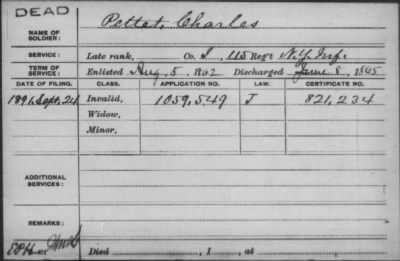 DEAD
NAME OF SOLDIER: Pettet, Charles
SERVICE: Late rank, Co. I, 115 Reg't N.Y. Inf.
TERM OF SERVICE: Enlisted Aug. 5, 1862 Discharged June 8, 1865
DATE OF FILING. CLASS. APPLICATION NO. LAW. CERTIFICATE NO.
1891, Sept. 24 Invalid, 1059,549 J 821,234
Widow,
Minor,
ADDITIONAL SERVICES:
REMARKS:
Died , 1 , at